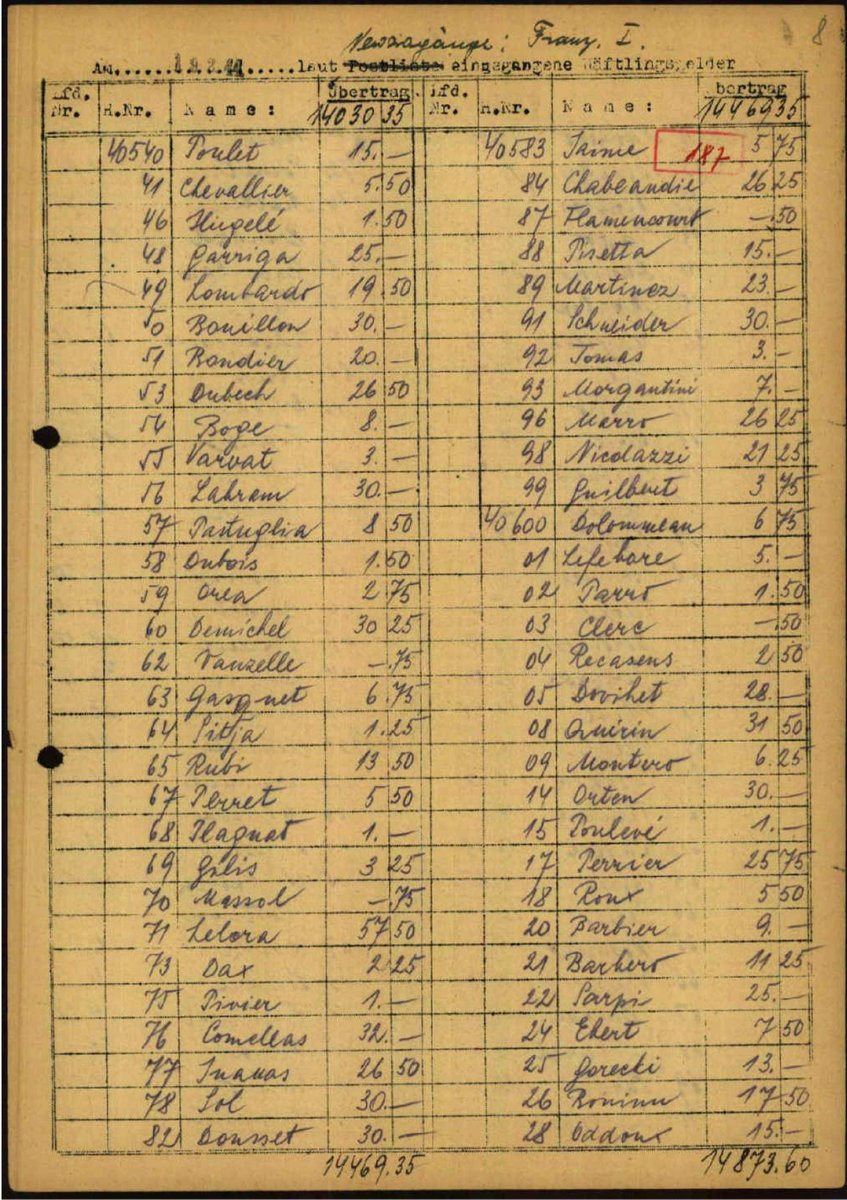 8
Neuzugänge: Franz. I.
Am......19.2.44.....laut Postliste eingegangene Häftlingsgelder
Lfd. Nr. H.Nr. Name: Übertrag 14030 35
40540 Poulet 15.—
41 Chevallier 5.50
46 Hugelé 1.50
48 Garriga 25.—
49 Lombardo 19.50
50 Bouillon 30.—
51 Bondier 20.—
53 Dubech 26 50
54 Boge 8.—
55 Varvat 3.—
56 Labram 30.—
57 Pastuglia 8 50
58 Dubois 1.50
59 Orea 2 75
60 Demichel 30 25
62 Vanzelle —.75
63 Gasquet 6.75
64 Sitja 1.25
65 Rubi 13 50
67 Perret 5 50
68 Plagnat 1.—
69 Gilis 3 25
70 Massol —.75
71 Lelora 57 50
73 Dax 2 25
75 Pivier 1.—
76 Comellas 32.—
77 26 50
78 Sol 30.—
82 Dousset 30.—
14469.35
Lfd. Nr. H.Nr. Name: bertrag 14469 35
40583 Jaime 187 5 75
84 Chabeaudie 26 25
87 Flamencourt —.50
88 Pisetta 15.—
89 Martinez 23.—
91 Schneider 30.—
92 Tomas 3.—
93 Morgantini 7.—
96 Marro 26 25
98 Nicolazzi 21 25
99 Guilbert 3 75
40600 Dolommeau 6 75
01 Lefebvre 5.—
02 Parro 1.50
03 Clerc —.50
04 Recasens 2 50
05 Dovihet 28.—
08 Quirin 31 50
09 Montero 6.25
14 Orten 30.—
15 Poulevé 1.—
17 Perrier 25 75
18 Roux 5 50
20 Barbier 9.—
21 Barbero 11 25
22 Sarpi 25.—
24 Ebert 7 50
25 Gorecki 13.—
26 17 50
28 Oddoux 15.—
14873.60